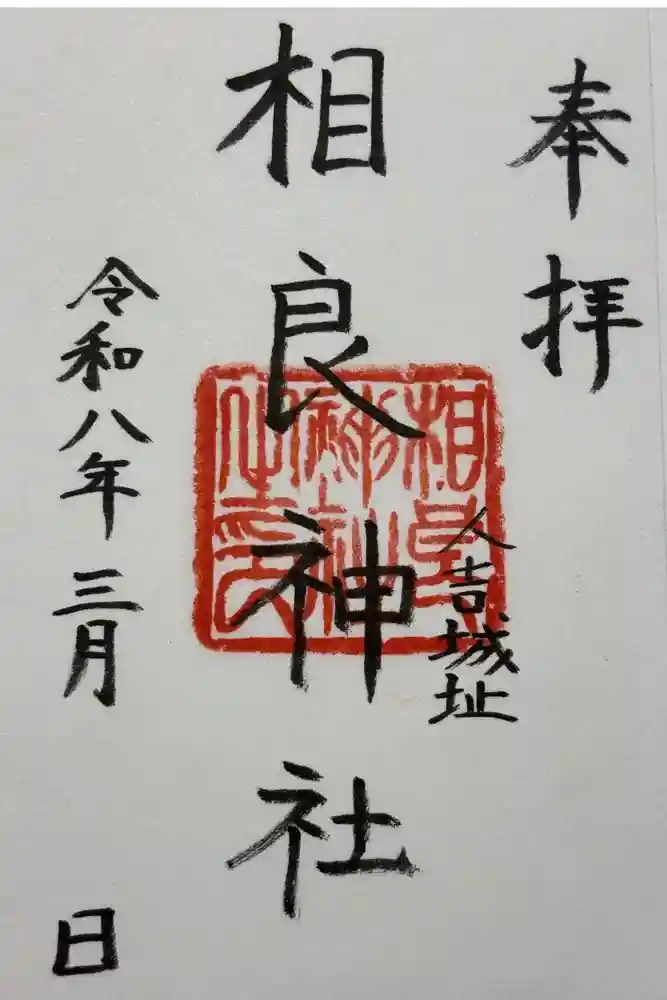 奉拝
人吉城址
相良神社
相良神社之印
令和八年三月 日